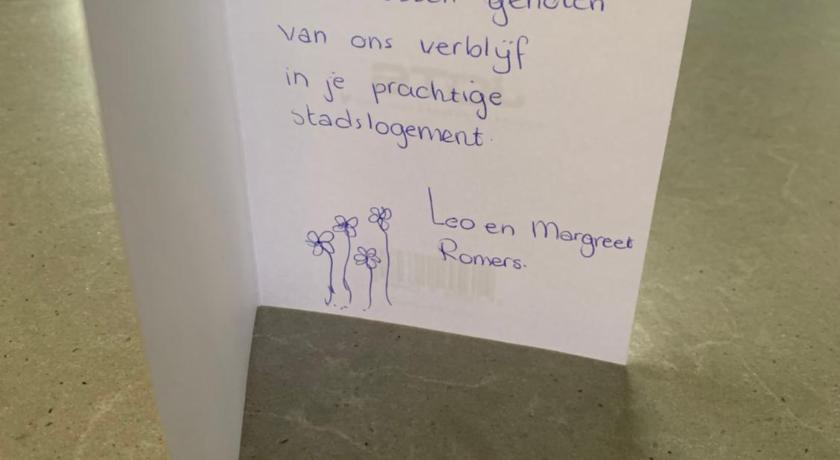 genoten
van ons verblijf
in je prachtige
stadslogement.
Leo en Margreet
Romers.